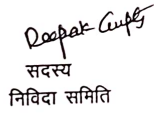 Deepak Gupta
सदस्य
निविदा समिति